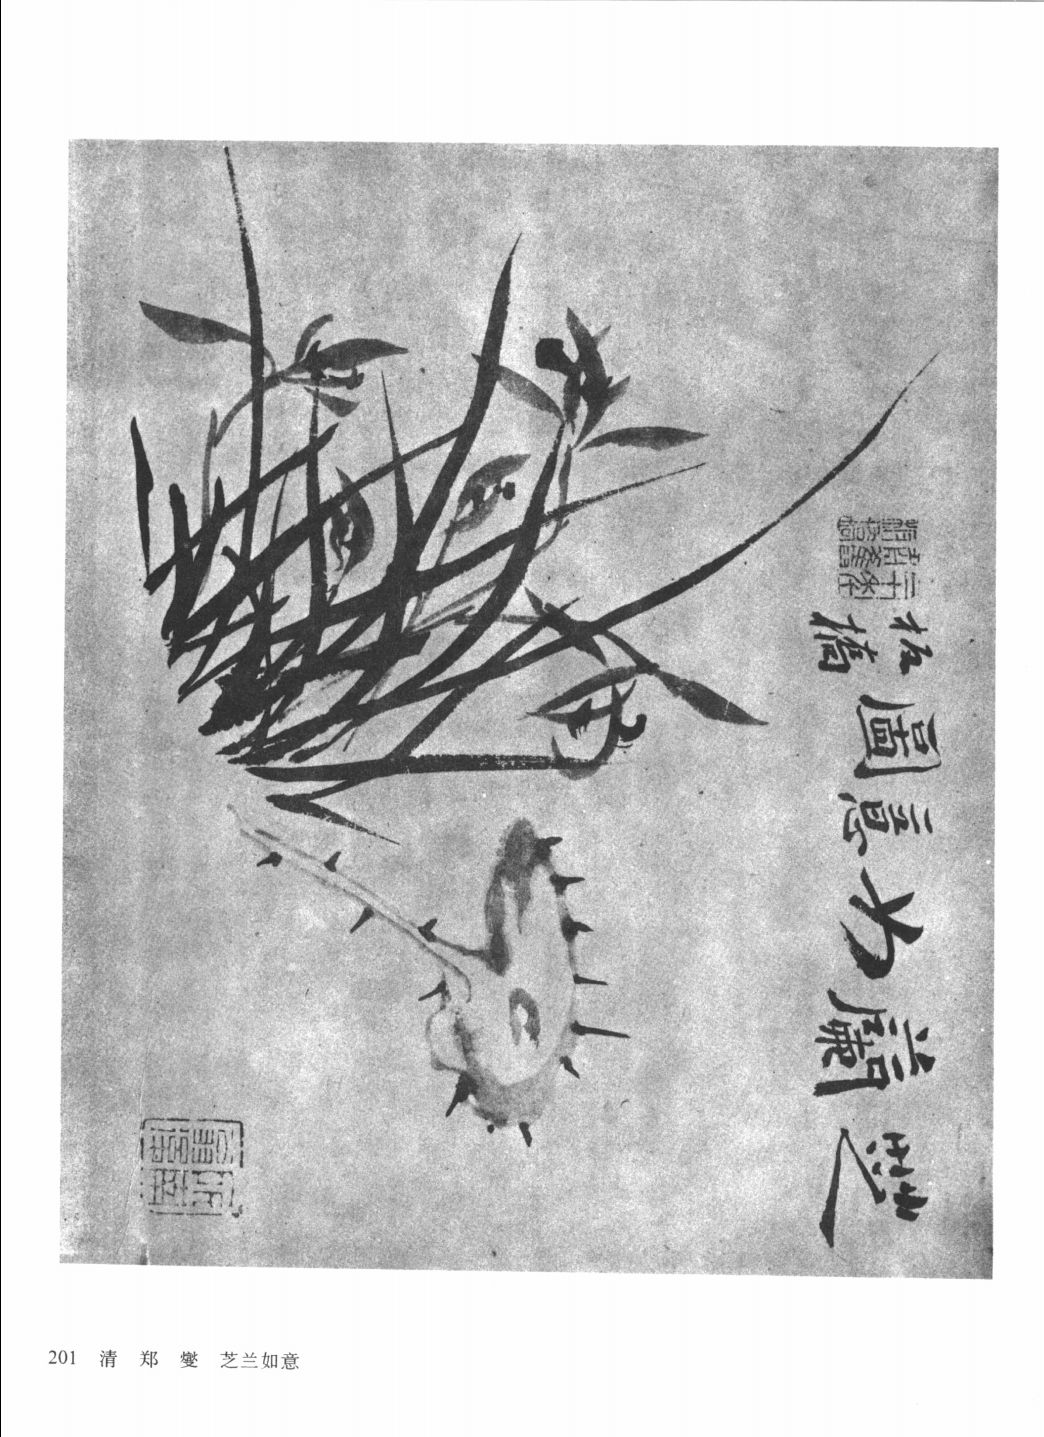 芝蘭如意圖
板橋
201 清 郑 燮 芝兰如意